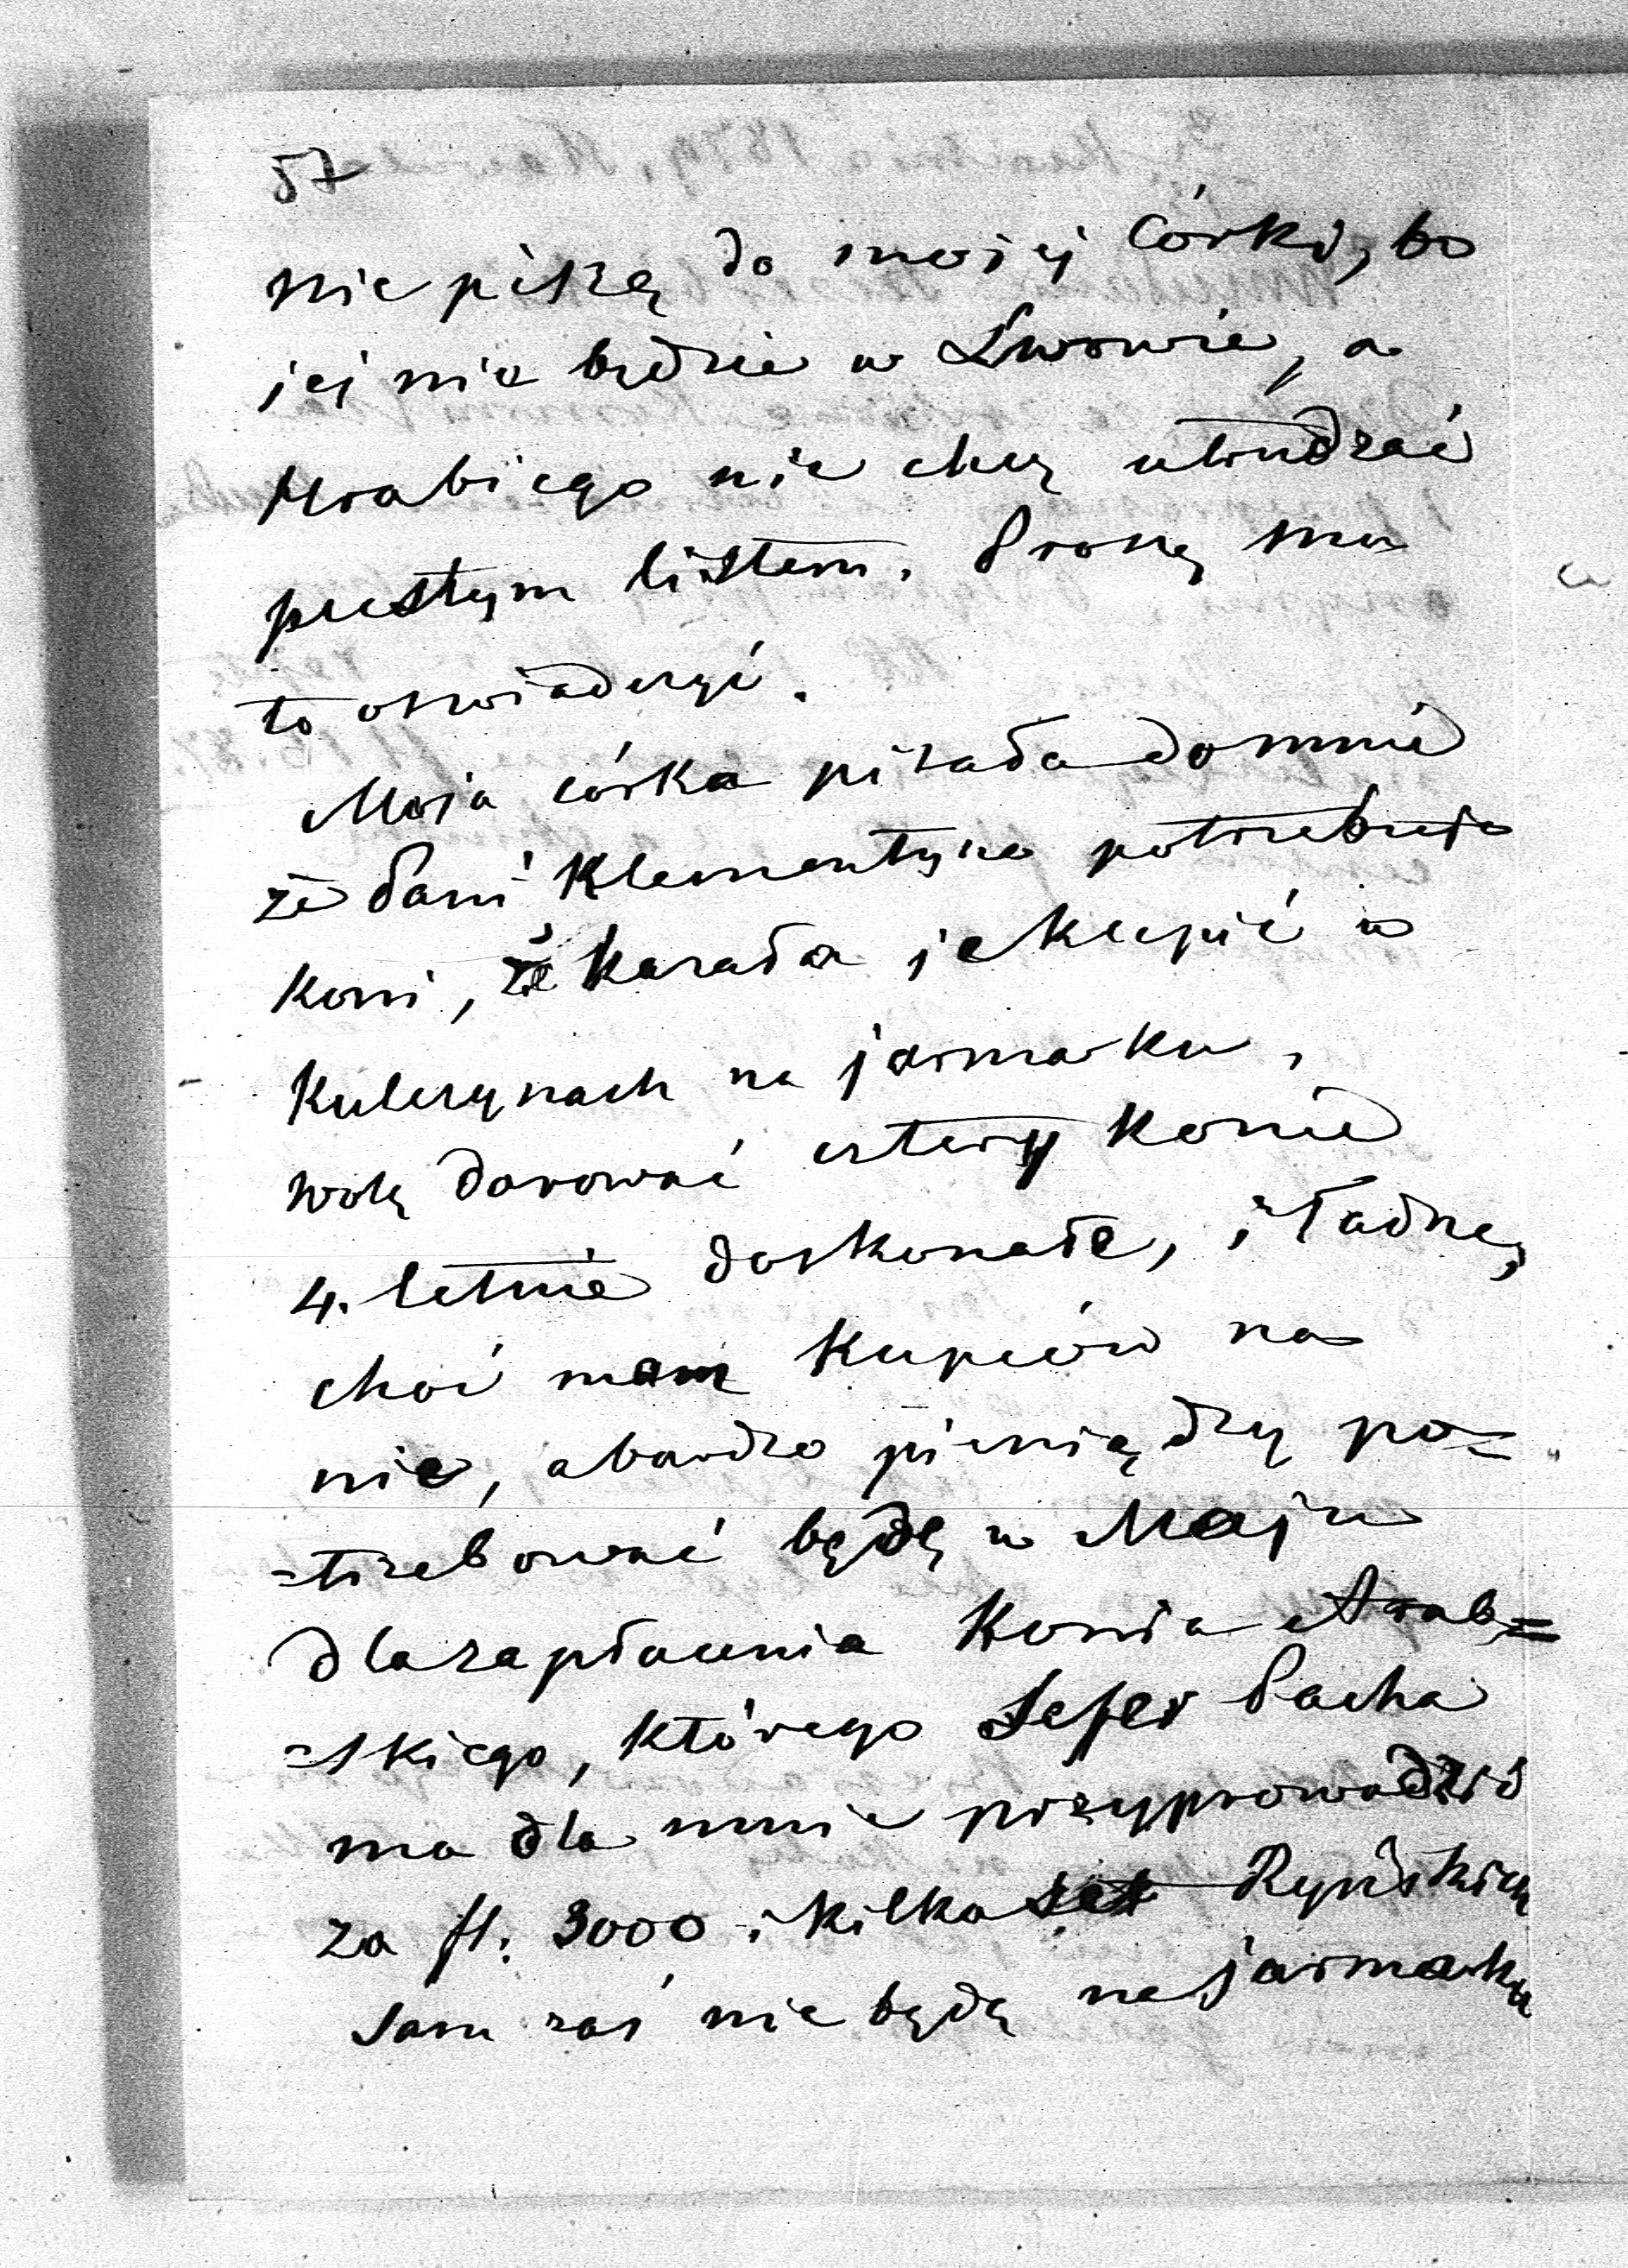 57
nie piszę do mojej Córki, bo
jej nie będzie w Lwowie, a
Hrabiego nie chcę utrudzać
pustym listem. Proszę mu
to oswiadczyć.
Moja córka pisała do mnie
że Pani Klementyna potrzebuje
koni, że kazała je kupić w
Kulczynach na jarmarku,
wolę darować cztery konie
4. letnie doskonałe, i ładne,
choć mam kupców na
nie, a bardzo pieniędzy po=
=trzebować będę w Maju
dla zapłacenia Konia Arab=
=skiego, którego Sefer Pacha
ma dla mnie przyprowadzić
za fl. 3000 i kilkaset Ryńskich
Sam zaś nie będę na jarmarku